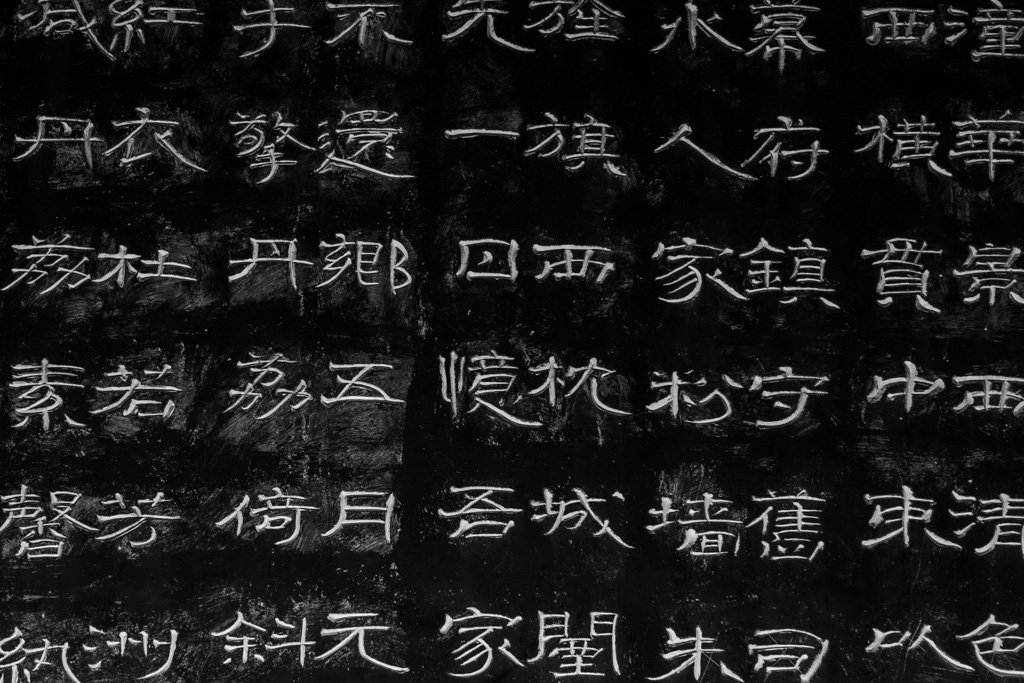 潼華景西清色
西橫貫中東以
幕府鎮守舊司
水人家粉墻朱
旌旗西枕城闉
先一囙憶吾家
還鄉五月元
手擎丹荔倚斜
紅衣杜若芳洲
減丹荔素馨紈